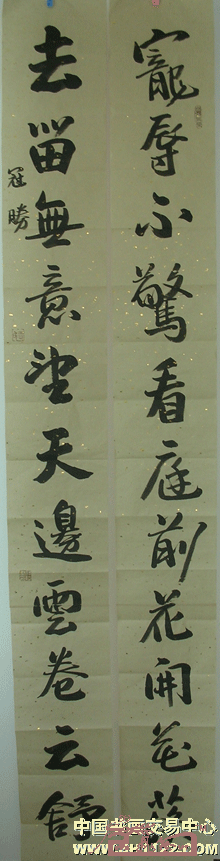 寵辱不驚看庭前花開花落
去留無意望天邊雲卷云舒
冠勝
中国书画交易中心